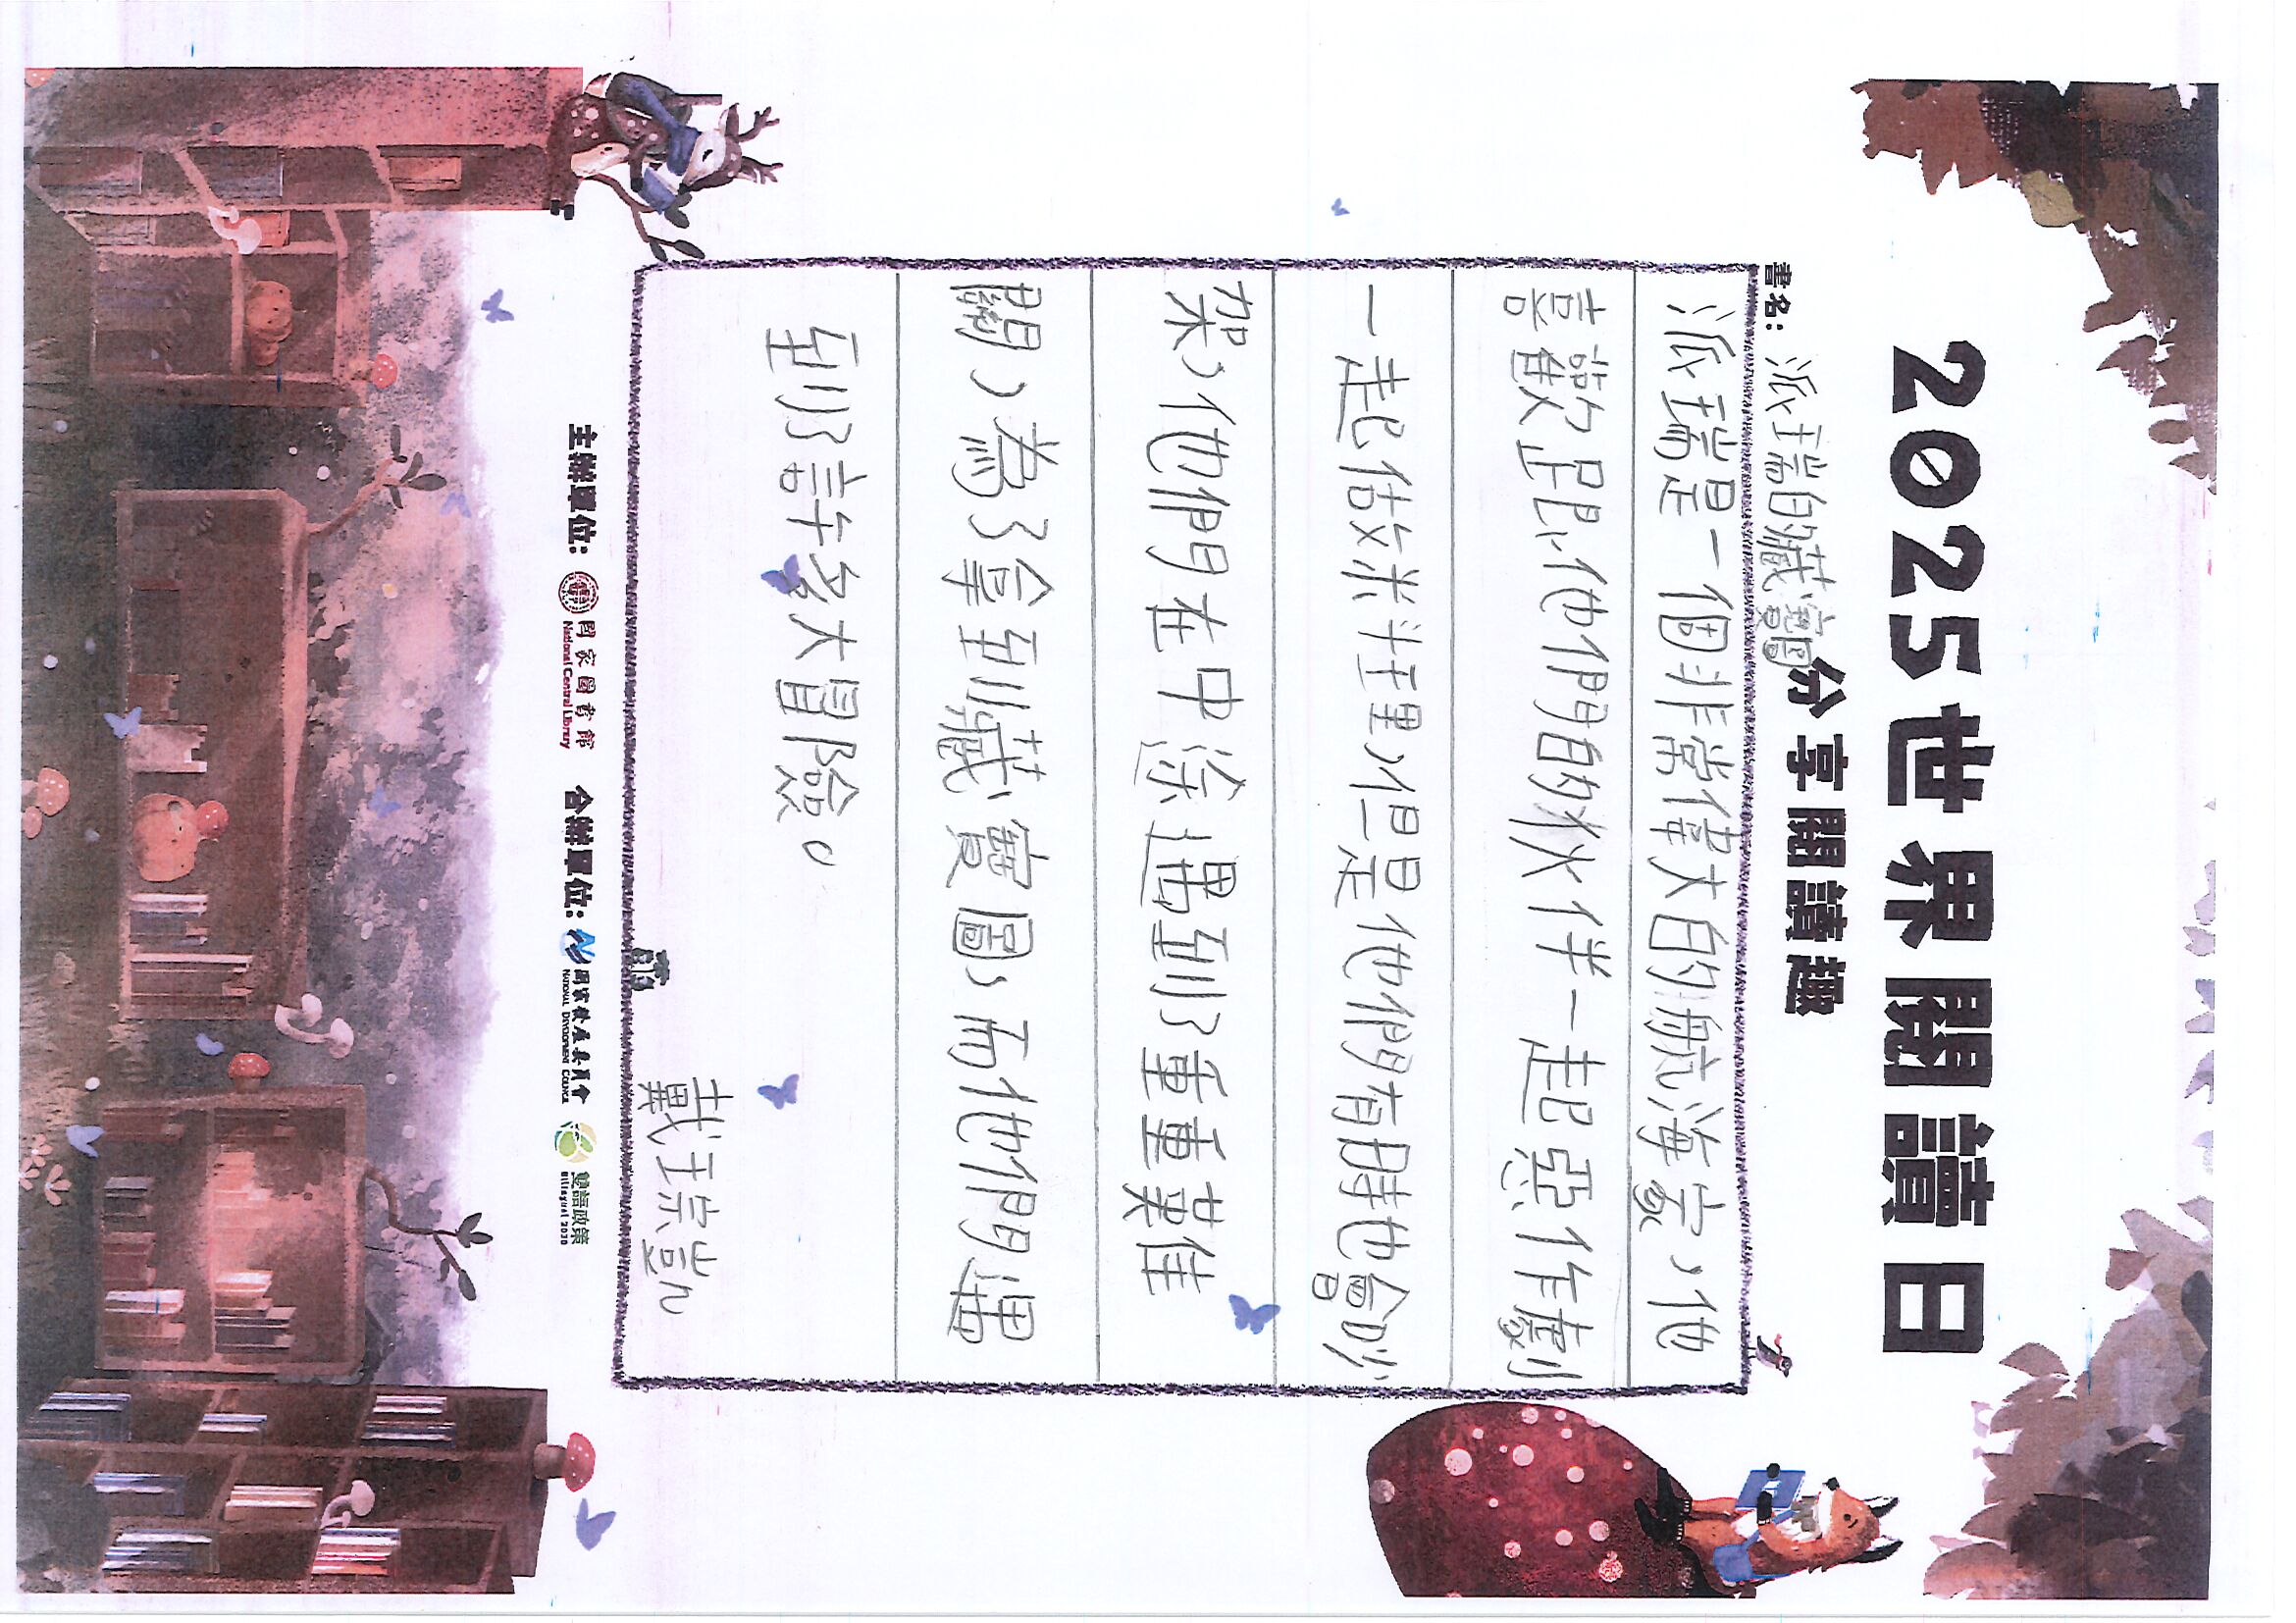 2025世界閱讀日
分享閱讀趣
書名：派瑞的藏寶圖
派瑞是一個非常偉大的航海家，他
喜歡跟他們的伙伴一起惡作劇
一起做料理，但是他們有時也會吵
架，他們在中途遇到了重重困難
關，為了拿到藏寶圖，而他們遇
到了許多大冒險。
戴琮訔
主辦單位：國家圖書館 National Central Library 合辦單位：國家發展委員會 National Development Council 雙語政策 Bilingual 2030